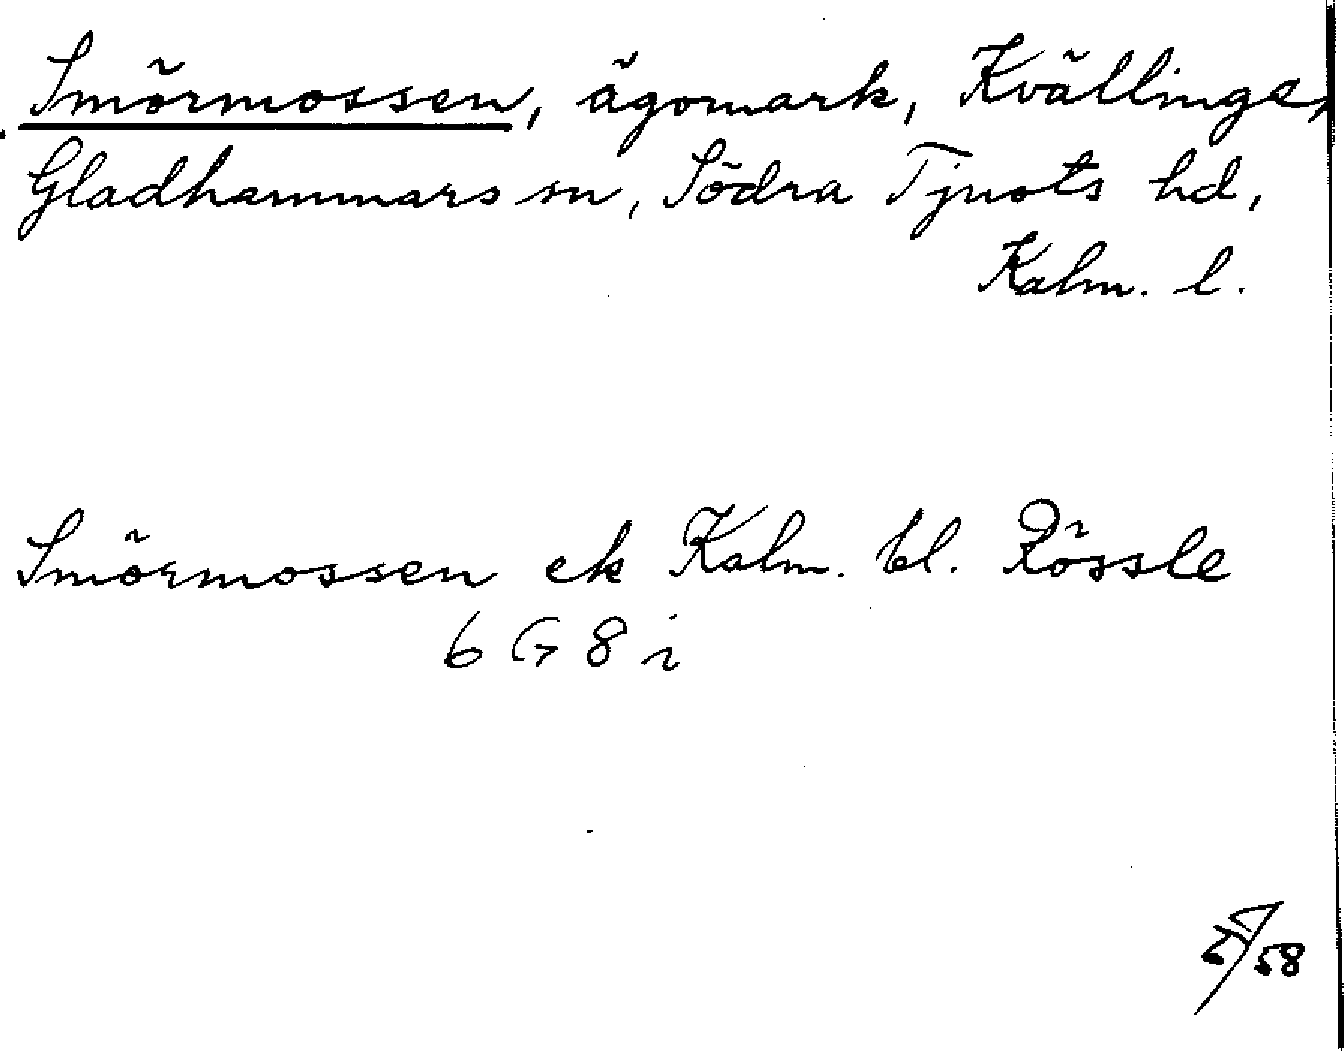 Smörmossen, ägomark, Kvällinge,
Gladhammars sn, Södra Tjusts hd,
Kalm. l.
Smörmossen ek Kalm. bl. Rössle
6 G 8 i
58